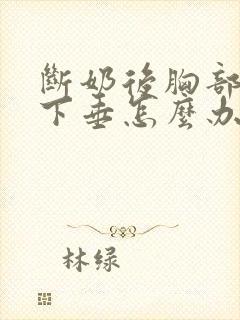 斷奶後胸部
下垂怎麼办
林绿